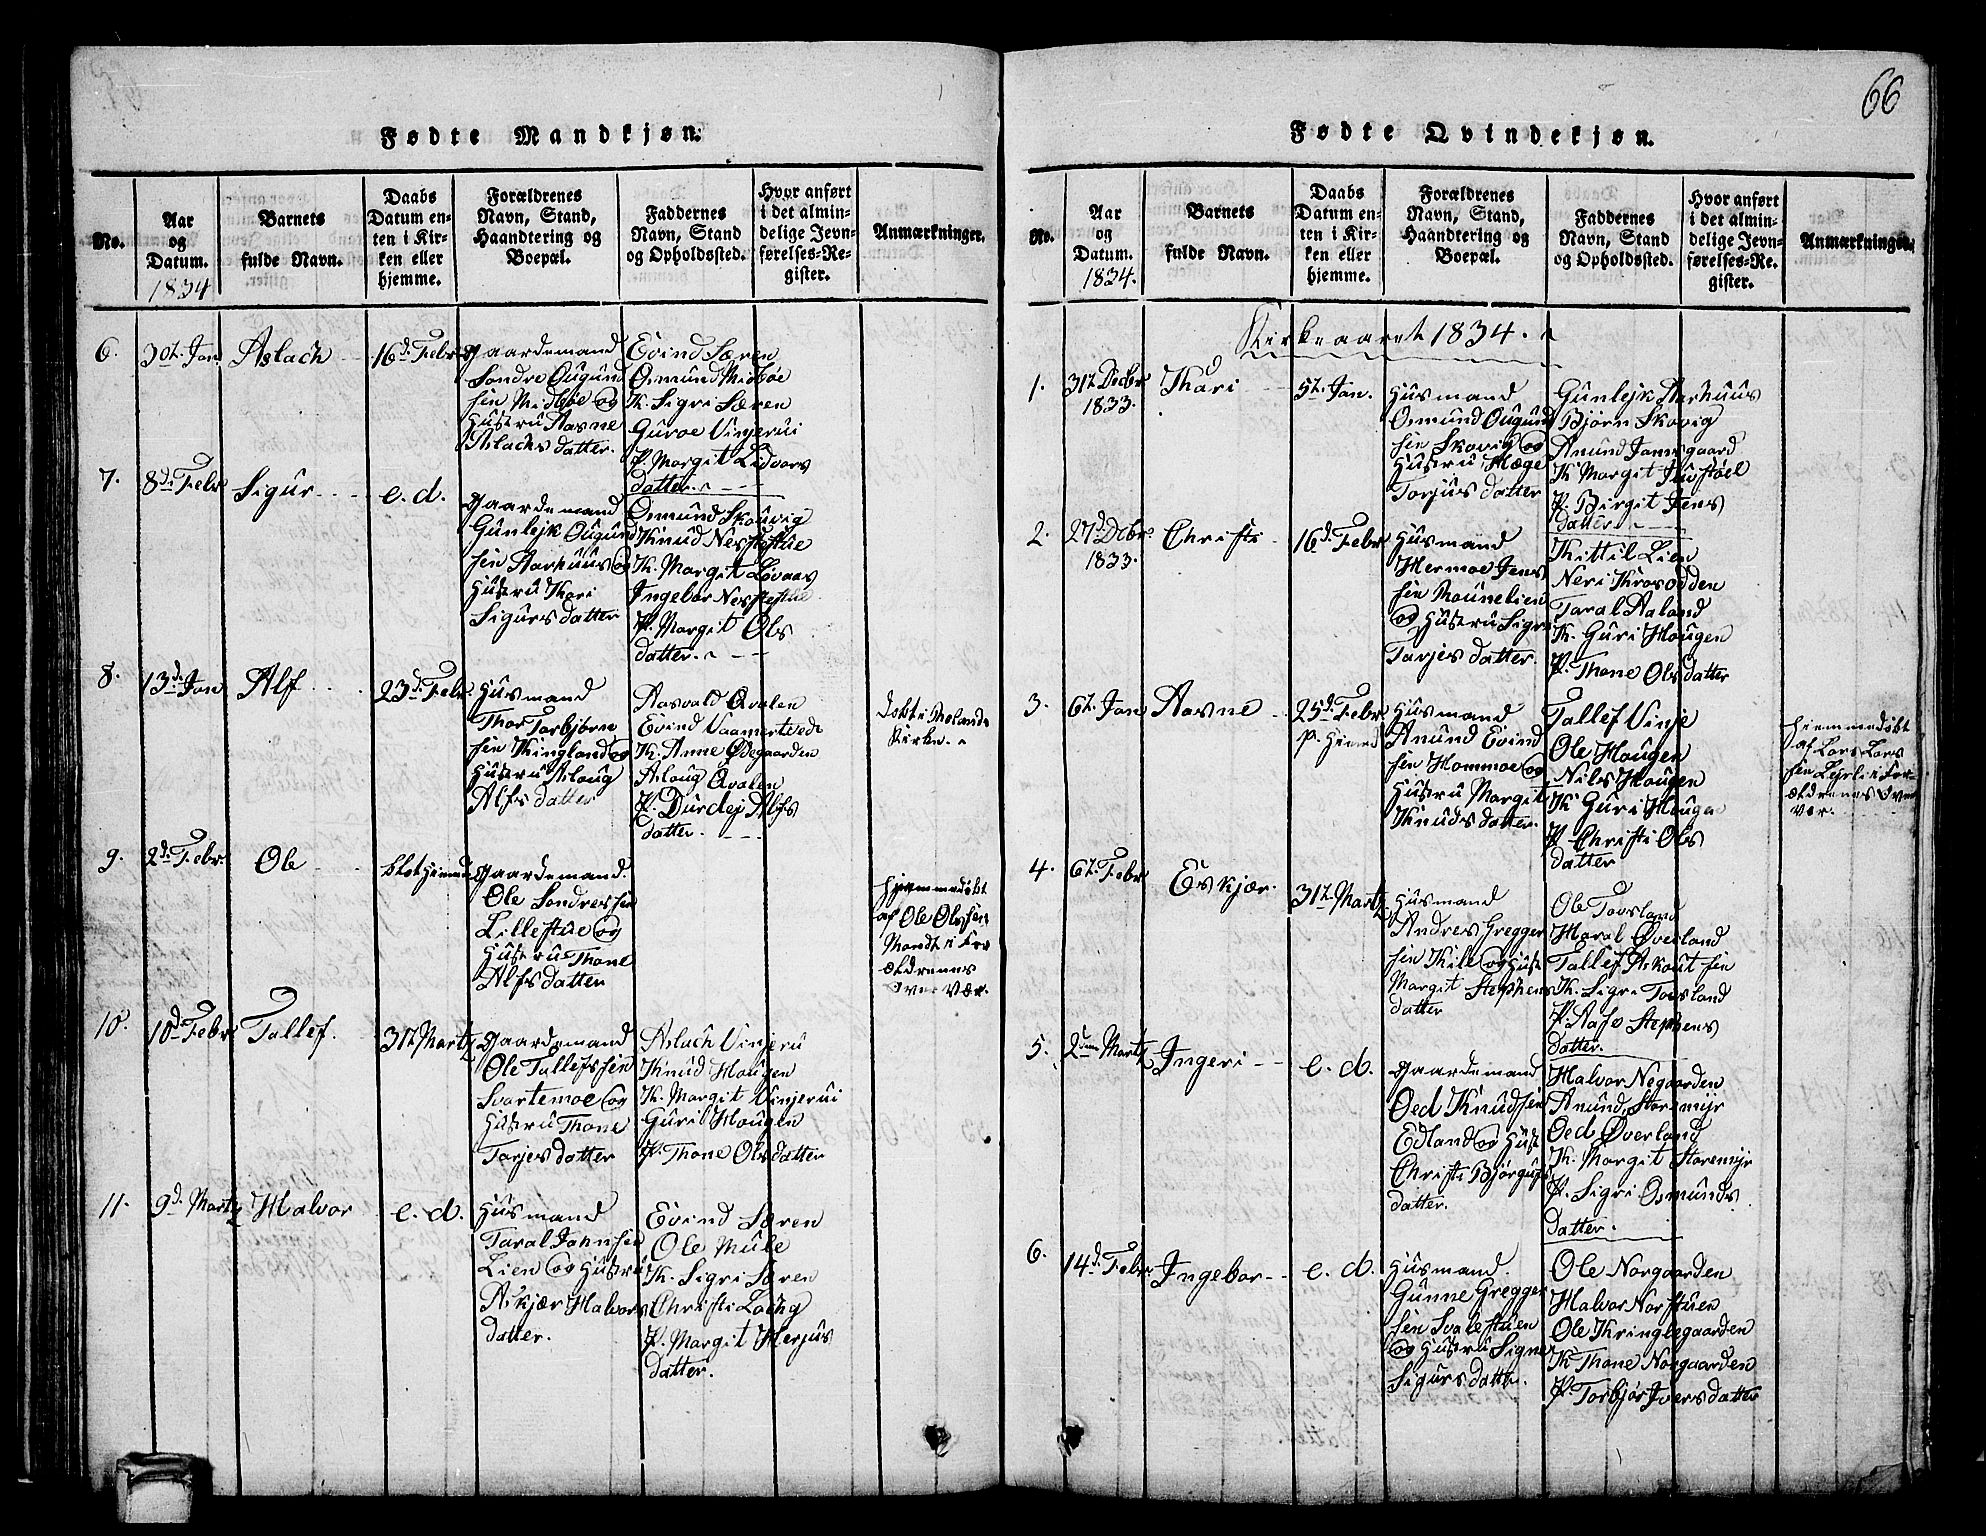 66
Fødte Mandkjøn.
No.
Aar
og
Datum.
1834
Barnets
fulde Navn.
Daabs
Datum en-
ten i Kir-
ken eller
hjemme.
Forældrenes
Navn, Stand,
Haandtering og
Boepæl.
Faddernes
Navn, Stand
og Opholdssted.
Hvor anført
i det almin-
delige Jevn-
førelses-Re-
gister.
Anmærkninger.
6.
30t. Jan
Aslach
16d. Febr
Gaardemand
Sondre Ougund
sen Midbøe og
Hustru Aasne
Aslachs datter.
Evind Særen
Osmund Midbøe
K. Sigri Særen
Guroe Vinjerui
P. Margit Lidvors
datter.
7.
8d. Febr
Sigur
e. d.
Gaardemand
Gunlejk Ougund
sen Aarhuus og
Hustru Thori
Sigurs datter
Osmund Skouvig
Knud Nerstestue
K. Margit Løvaas
Ingebor Nerstestue
P. Margit Ols
datter.
8.
13d. Jan
Alf
23d. Febr
Husmand
Thor Torbjørn
sen Kingland og
Hustru Aslaug
Alfs datter
Aasvald Qvalen
Evind Vaamertvedt
K. Anne Ødegaarden
Aslaug Qvalen
P. Durdej Alfs
datter.
Døbt i Molands
Kirke.
9.
2d. Febr
Ole
blot Hiemme
Gaardemand
Ole Sondressen
Lillestue og
Hustru Thone
Alfs datter
Hjemmedøbt
af Ole Olssen
Mandt i For
ældrenes
Overvær.
10.
10d. Febr
Tallef.
31t Martz
Gaardemand
Ole Tallefssen
Svartemoe og
Hustru Thone
Tarjes datter
Aslach Vinjeru
Knud Hougen
K. Margit Vinjerui
Guri Hougen
P. Thone Ols datter
11.
9d. Martz
Halvor
e. d.
Husmand
Taral Johnsen
Lien og Hustru
Askjær Halvors
datter.
Evind Særen
Ole Mule
K. Sigri Særen
Christi Loung
P. Margit Herjus
datter.
Fødte Qvindekjøn.
No.
Aar
og
Datum.
1834.
Barnets
fulde Navn.
Daabs
Datum en-
ten i Kir-
ken eller
hjemme.
Forældrenes
Navn, Stand,
Haandtering og
Boepæl.
Faddernes
Navn, Stand
og Opholdssted.
Hvor anført
i det almin-
delige Jevn-
førelses-Re-
gister.
Anmærkninger.
Kirkeaaret 1834.
1.
31t Decbr
1833.
Thari
5t. Jan.
Husmand
Osmund Ougund
sen Skovig og
Hustru Hæge
Torjus datter
Gunlejk Aarhuus
Bjørn Skovig
Anund Jamsgaard
K Margit Juvstøel
P. Birgit Jens
datter
2.
27d. Debr.
1833.
Christi
16d. Febr
Husmand
Hermoe Jens
sen Mounelien
og Hustru Sigri
Tarjes datter.
Kittil Lien
Neri Krosodden
Taral Aaland
K. Guri Hougen
P. Thone Ols datter
3.
6t. Jan
Aasne
25d. Febr
p. Hiemd
Husmand
Anund Evind
sen Hommoe og
Hustru Margit
Knuds datter.
Tallef Vinje
Ole Hougen
Nils Hougen
K Guri Hougen
P Christi Ols
datter
Hiemmedøbt
af Lars Lars
sen Lejrli i For-
ældrenes Over
vær.
4.
6t. Febr
Eskjær.
31t. Martz
Husmand
Andres Gregger
sen Kile og Hust
Margit Stephens
datter
Ole Tovsland
Haral Øverland
Tallef Askout sen
K. Sigri Tovsland
P. Aase Stephens
datter.
5.
2den Martz
Ingeri
e. d.
Gaardemand
Oed Knudsen
Edland og Hust
Christi Bjørgufs
datter.
Halvor Negaarden
Anund Storemyr
Oed Øverland
K. Margit Storemyr
P. Sigri Osmunds.
datter.
6.
14d. Febr
Ingebor
e. d.
Husmand
Gunne Gregger
sen Svalestuen
og Hustru Signe
Sigurs datter.
Ole Norgaarden
Halvor Norstuen
Ole Kringlegaarden
K Thone Norgaarden
P. Torbjør Ivers datter